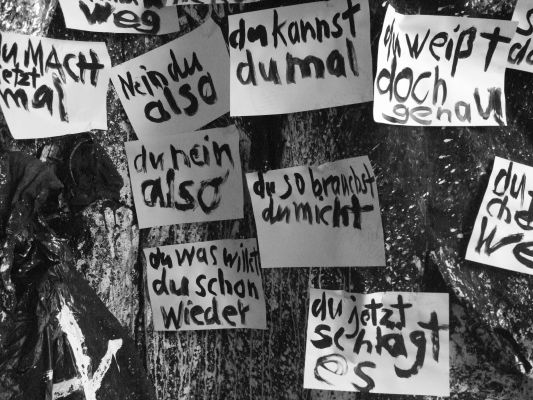 weg
du MACH
jetzt
mal
Nein du
also
du kannst
du mal
du weißt
doch
genau
du nein
also
du so brauchst
du micht
du was willst
du schon
wieder
du jetzt
schlägt
es
du